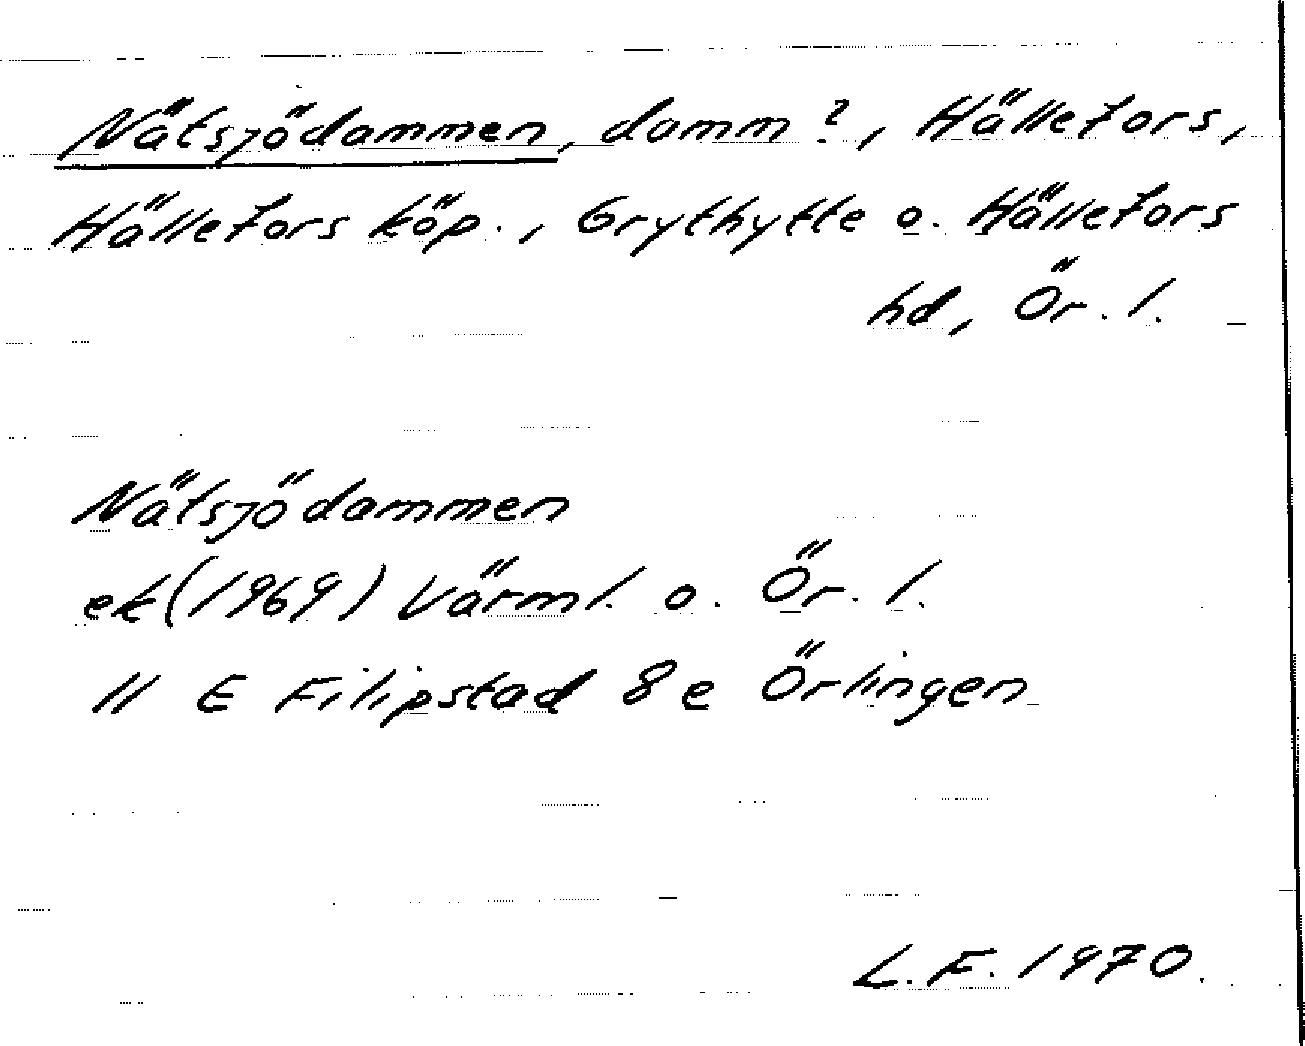 Nätsjödammen, damm?, Hällefors,
Hällefors köp., Grythytte o. Hällefors
hd, Ör. l.
Nätsjödammen
ek (1969) Värml. o. Ör. l.
11 E Filipstad 8 e Örlingen
L.F. 1970.